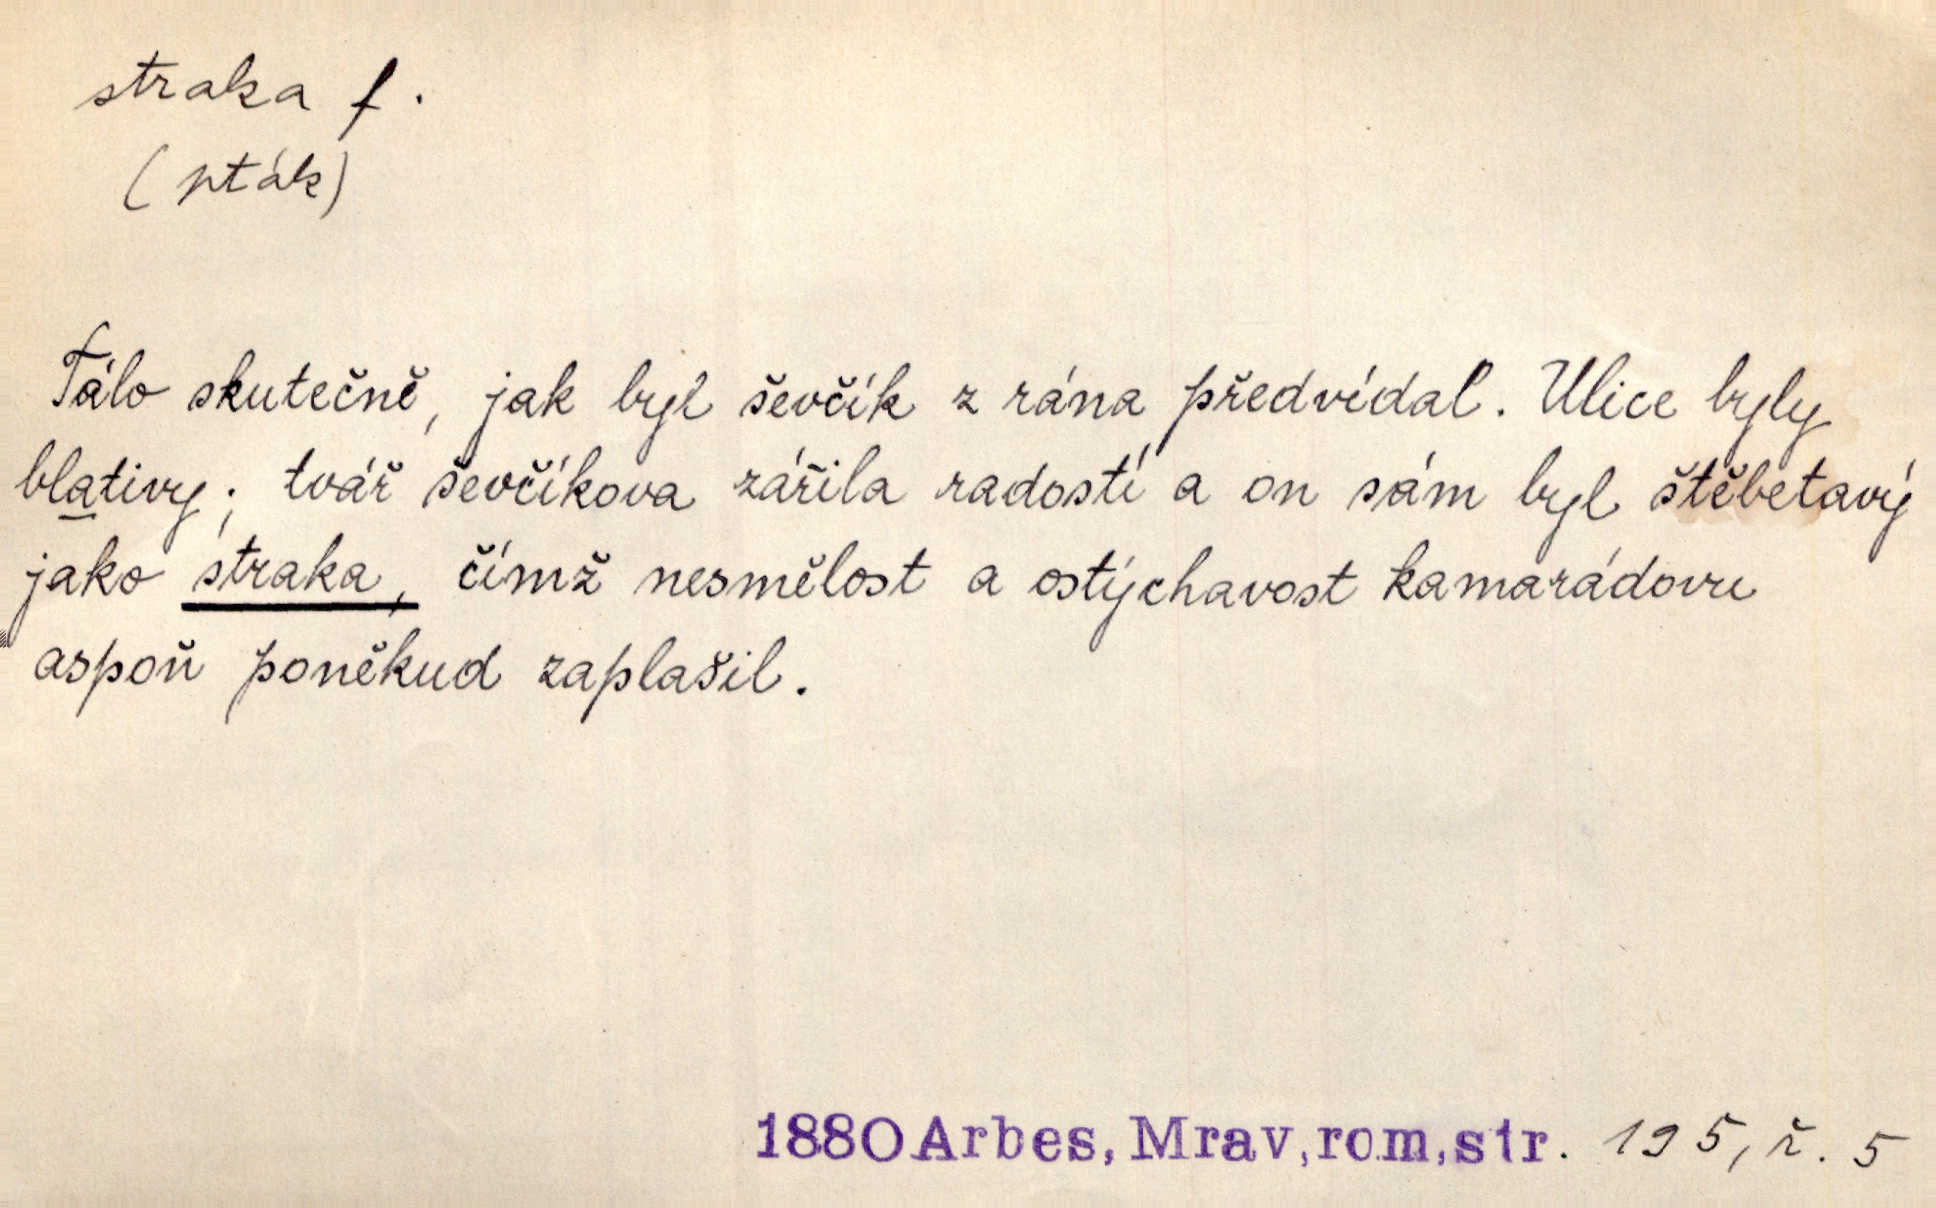 straka f.
(pták)
Tálo skutečně, jak byl ševčík z rána předvídal. Ulice byly
blativy; tvář ševčíkova zářila radostí a on sám byl štěbetavý
jako straka, čímž nesmělost a ostýchavost kamarádovu
aspoň poněkud zaplašil.
1880 Arbes, Mrav, rom, str. 195, ř. 5